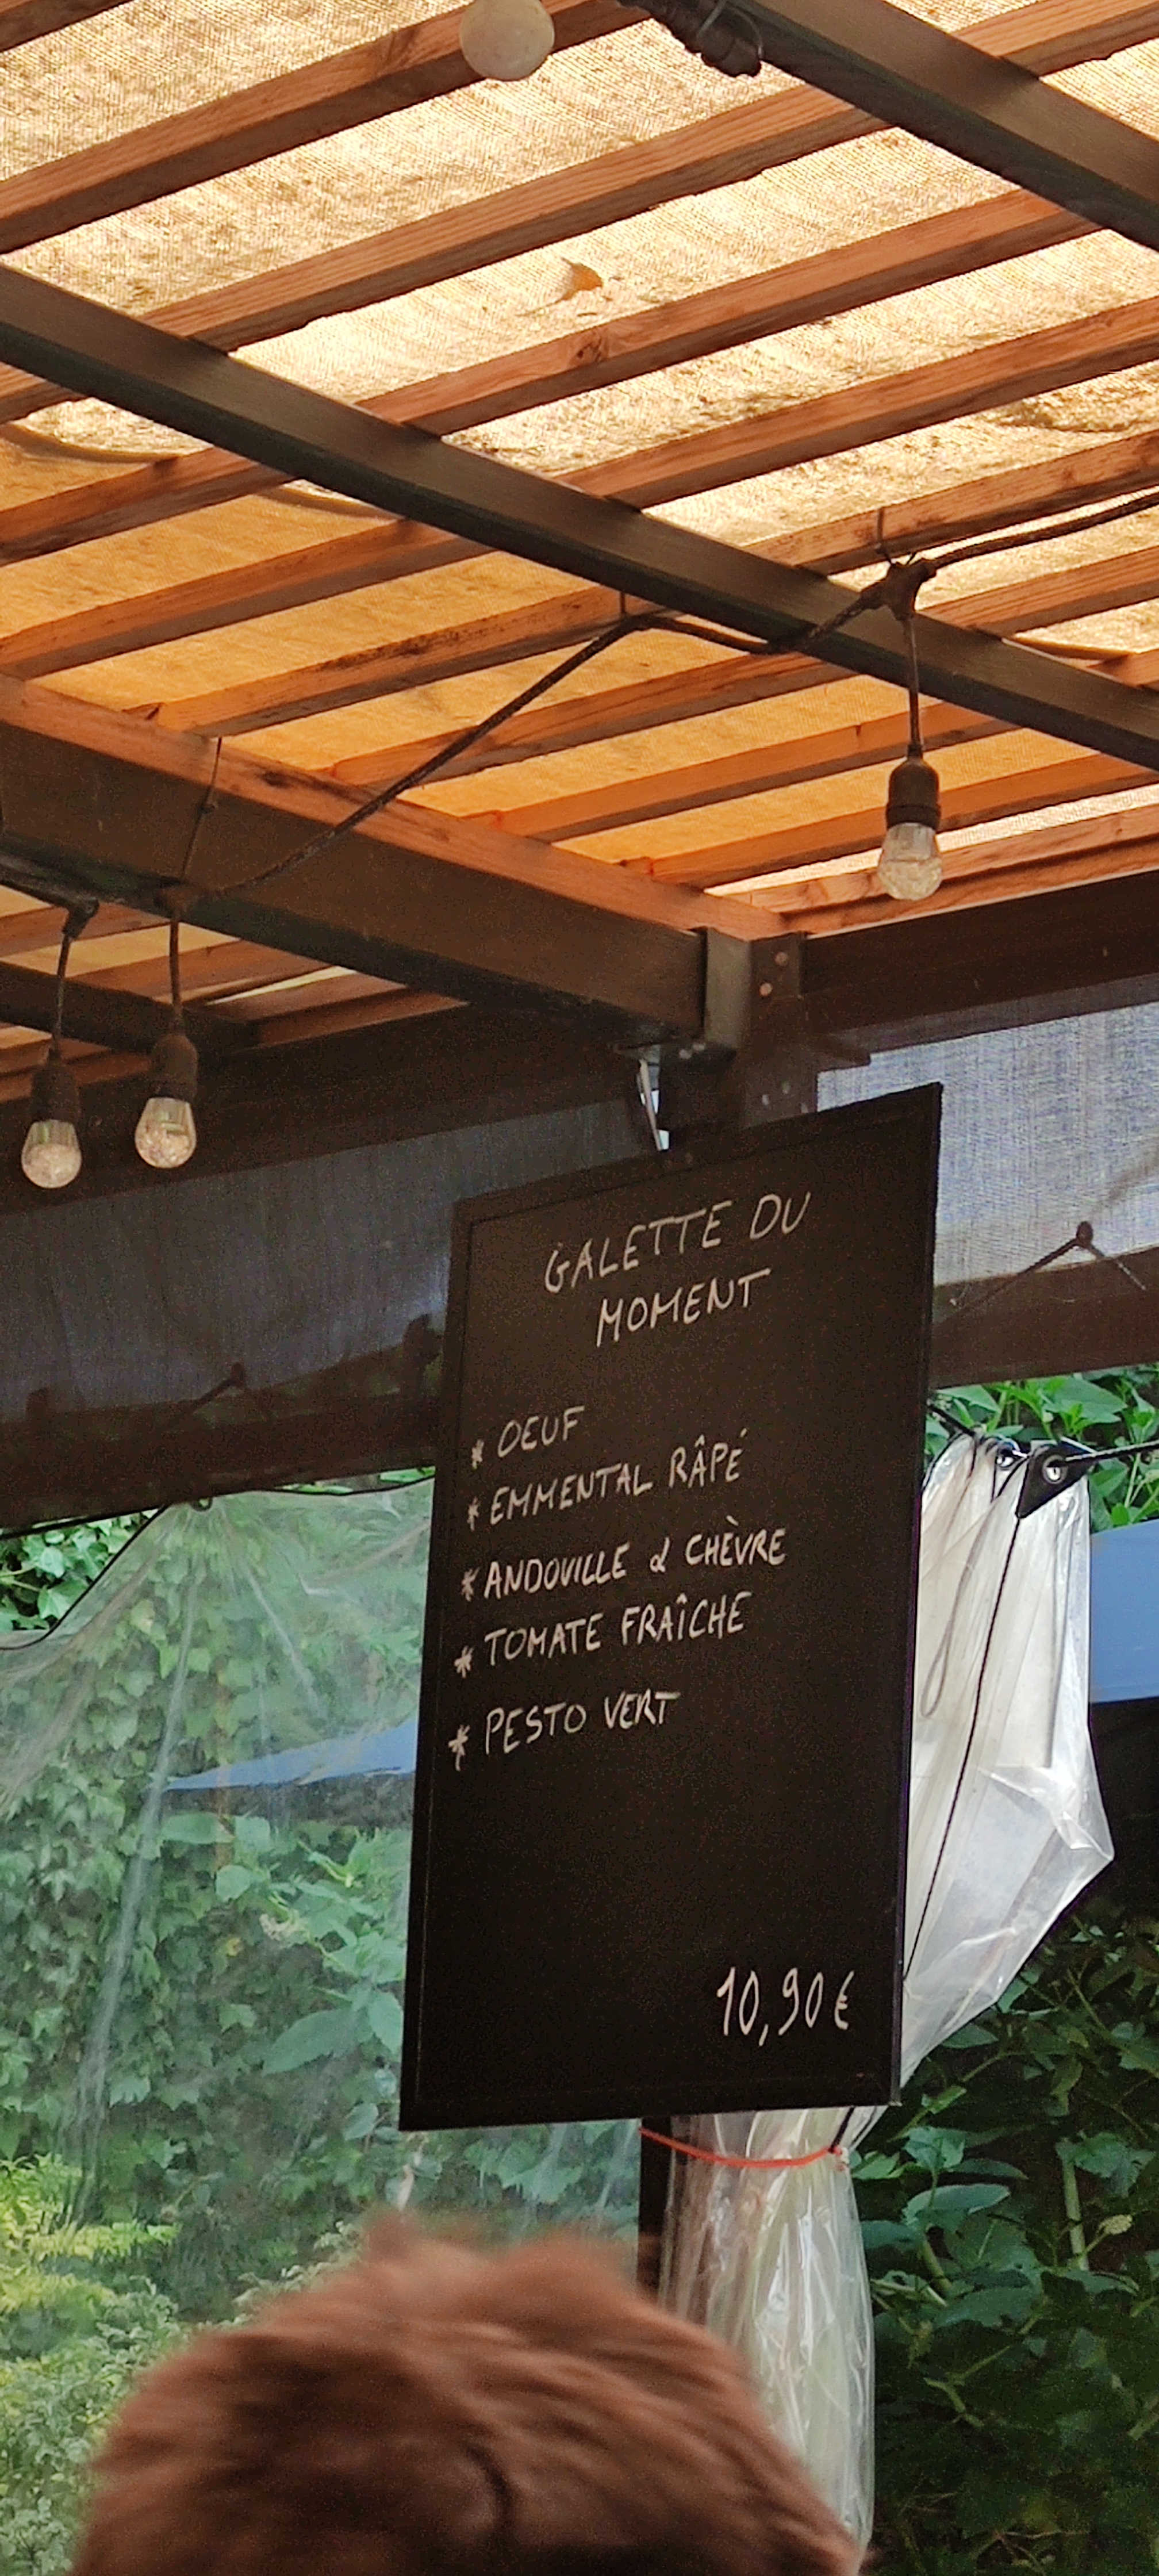 GALETTE DU
MOMENT
* OEUF
* EMMENTAL RÂPÉ
* ANDOVILLE & CHÈVRE
* TOMATE FRAÎCHE
* PESTO VERT
10,90€